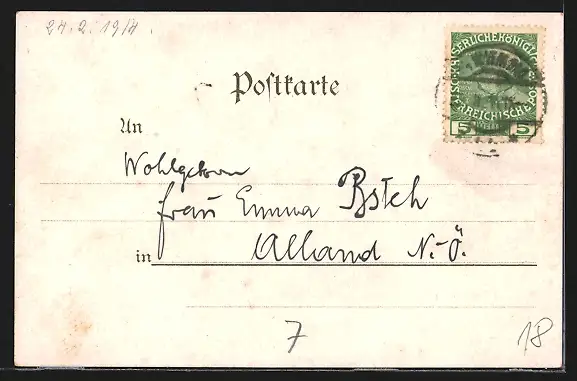 24.2.1914.
KAISERLICHE KÖNIGLICHE
ÖSTERREICHISCHE POST
5 5
Postkarte
An
Wohlgeborn
Frau Emma
in Alland N.-Ö.
7
18